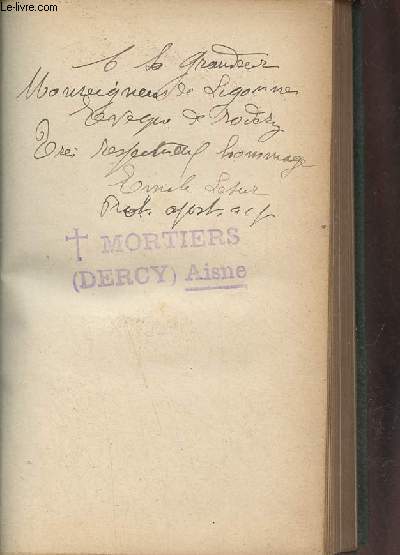 Le-livre.com
A Sa Grandeur
Monseigneur de Ligonnes
Evêque de Rodez
Très respectueux hommage
Emile Lesur
Prot. apost. a. i. p.
† MORTIERS
(DERCY) Aisne